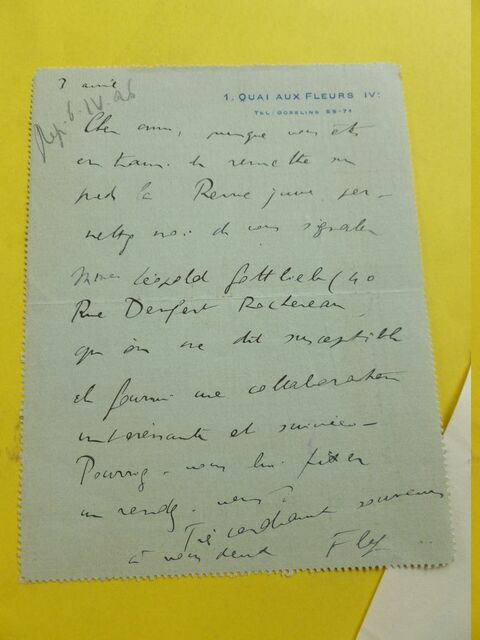 3 avril
Rep. 6. IV. 26
1. QUAI AUX FLEURS IVᵉ
TEL: GOBELINS 55-71
Cher ami, puisque vous êtes
en train de remettre sur
pied la Revue juive, per-
mettez moi de vous signaler
Léopold Gottlieb (40
Rue Denfert Rochereau)
qu'on me dit susceptible
de fournir une collaboration
intéressante et suivie -
Pourriez-vous lui fixer
un rendez-vous?
Très cordialement
à vous deux